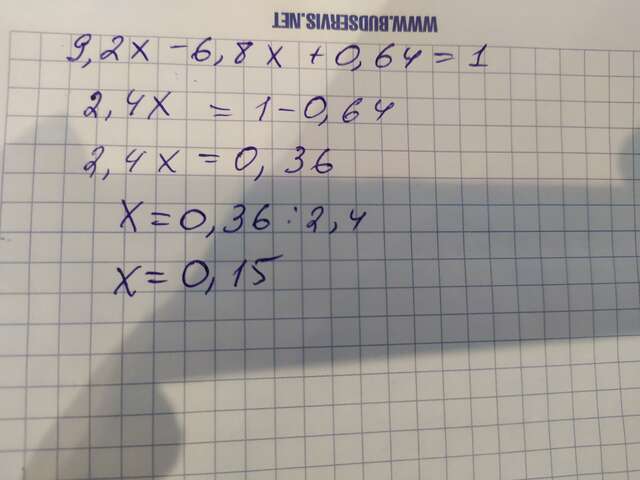 WWW.BUDSERVIS.NET
9,2x - 6,8x + 0,64 = 1
2,4x = 1 - 0,64
2,4x = 0,36
x = 0,36 : 2,4
x = 0,15